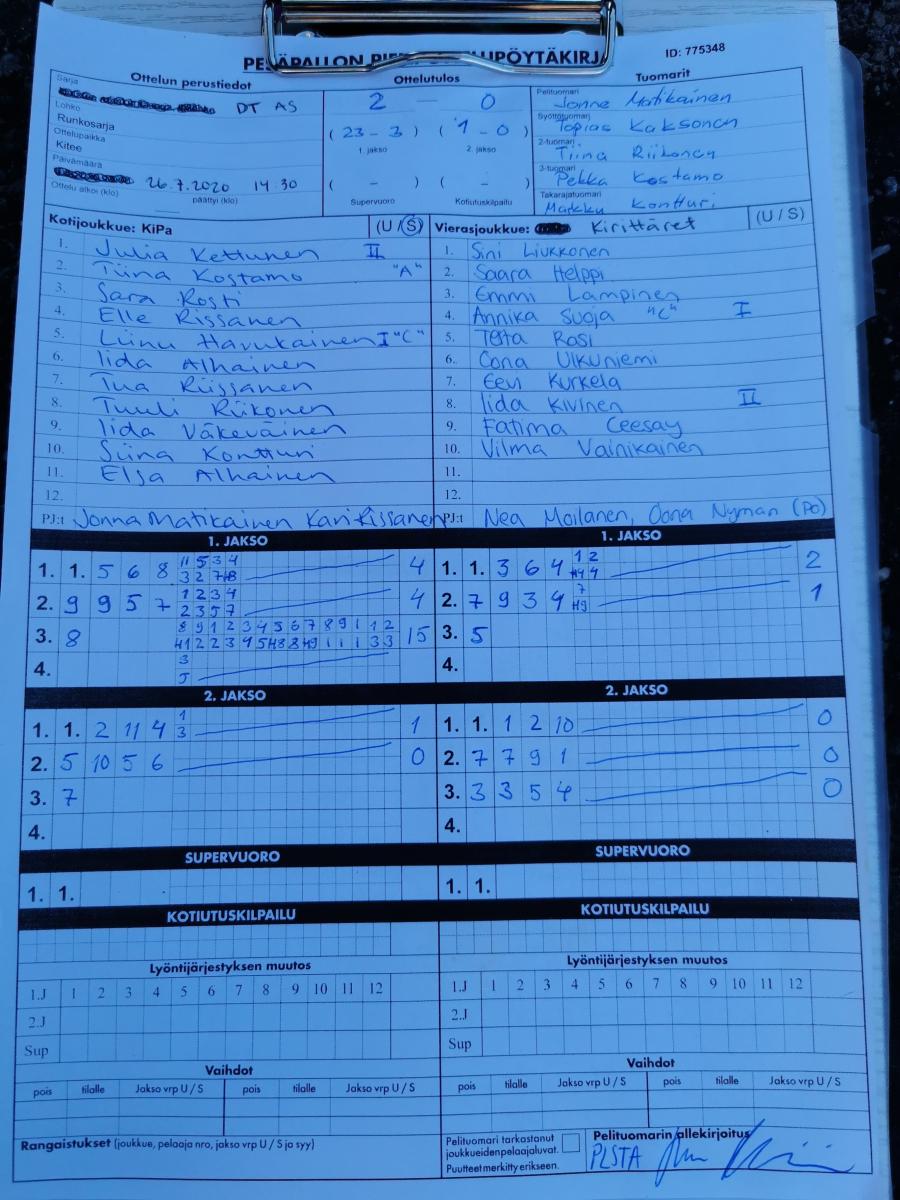 ID: 775348
Ottelun perustiedot
Ottelutulos
Tuomarit
Sarja
DT AS
Lohko
Runkosarja
Ottelupaikka
Kitee
Päivämäärä
26.7.2020 14.30
Ottelu alkoi (klo) päättyi (klo)
2 - 0
(23 - 3) (1 - 0)
1. jakso 2. jakso
( - ) ( - )
Supervuoro Kotiutuskilpailu
Pelituomari
Jonne Matikainen
Syöttötuomari
Topias Kaksonen
2-tuomari
Tiina Riikonen
3-tuomari
Pekka Kostamo
Takarajatuomari
Markku Kontturi
Kotijoukkue: KiPa (U / S)
1. Julia Kettunen II
2. Tiina Kostamo "A"
3. Sara Rosti
4. Elle Rissanen
5. Liinu Havukainen I "C"
6. Iida Alhainen
7. Tua Riissanen
8. Tuuli Riikonen
9. Iida Väkeväinen
10. Siina Kontturi
11. Elsa Alhainen
12.
PJ:t Jonna Matikainen Kari Rissanen
Vierasjoukkue: Kirittäret (U / S)
1. Sini Liukkonen
2. Saara Helppi
3. Emmi Lampinen
4. Annika Suoja "C" I
5. Rosi
6. Oona Ulkuniemi
7. Eevi Kurkela
8. Iida Kivinen II
9. Fatima Ceesay
10. Vilma Vainikainen
11.
12.
PJ:t Nea Moilanen, Oona Nyman (PJ)
1. JAKSO
1. 1. 5 6 8
11 5 3 4
3 2 7 H8
4
2. 9 9 5 7
1 2 3 4
2 3 5 7
4
3. 8
8 9 1 2 3 4 5 6 7 8 9 1 1 2
15
4.
3
5
1. JAKSO
1. 1. 3 6 4
1 2
H4 4
2
2. 7 9 3 4
7
H9
1
3. 5
4.
2. JAKSO
1. 1. 2 11 4
1
3
1
2. 5 10 5 6 0
3. 7
4.
2. JAKSO
1. 1. 1 2 10 0
2. 7 7 9 1 0
3. 3 3 5 4 0
4.
SUPERVUORO
1. 1.
SUPERVUORO
1. 1.
KOTIUTUSKILPAILU
Lyöntijärjestyksen muutos
1.J 1 2 3 4 5 6 7 8 9 10 11 12
2.J
Sup
Vaihdot
pois tilalle Jakso vrp U / S pois tilalle Jakso vrp U / S
KOTIUTUSKILPAILU
Lyöntijärjestyksen muutos
1.J 1 2 3 4 5 6 7 8 9 10 11 12
2.J
Sup
Vaihdot
pois tilalle Jakso vrp U / S pois tilalle Jakso vrp U / S
Rangaistukset (joukkue, pelaaja nro, jakso vrp U / S ja syy)
Pelituomari tarkastanut
joukkueidenpelaajaluvat.
Puutteet merkitty erikseen.
Pelituomarin allekirjoitus
PLSTA